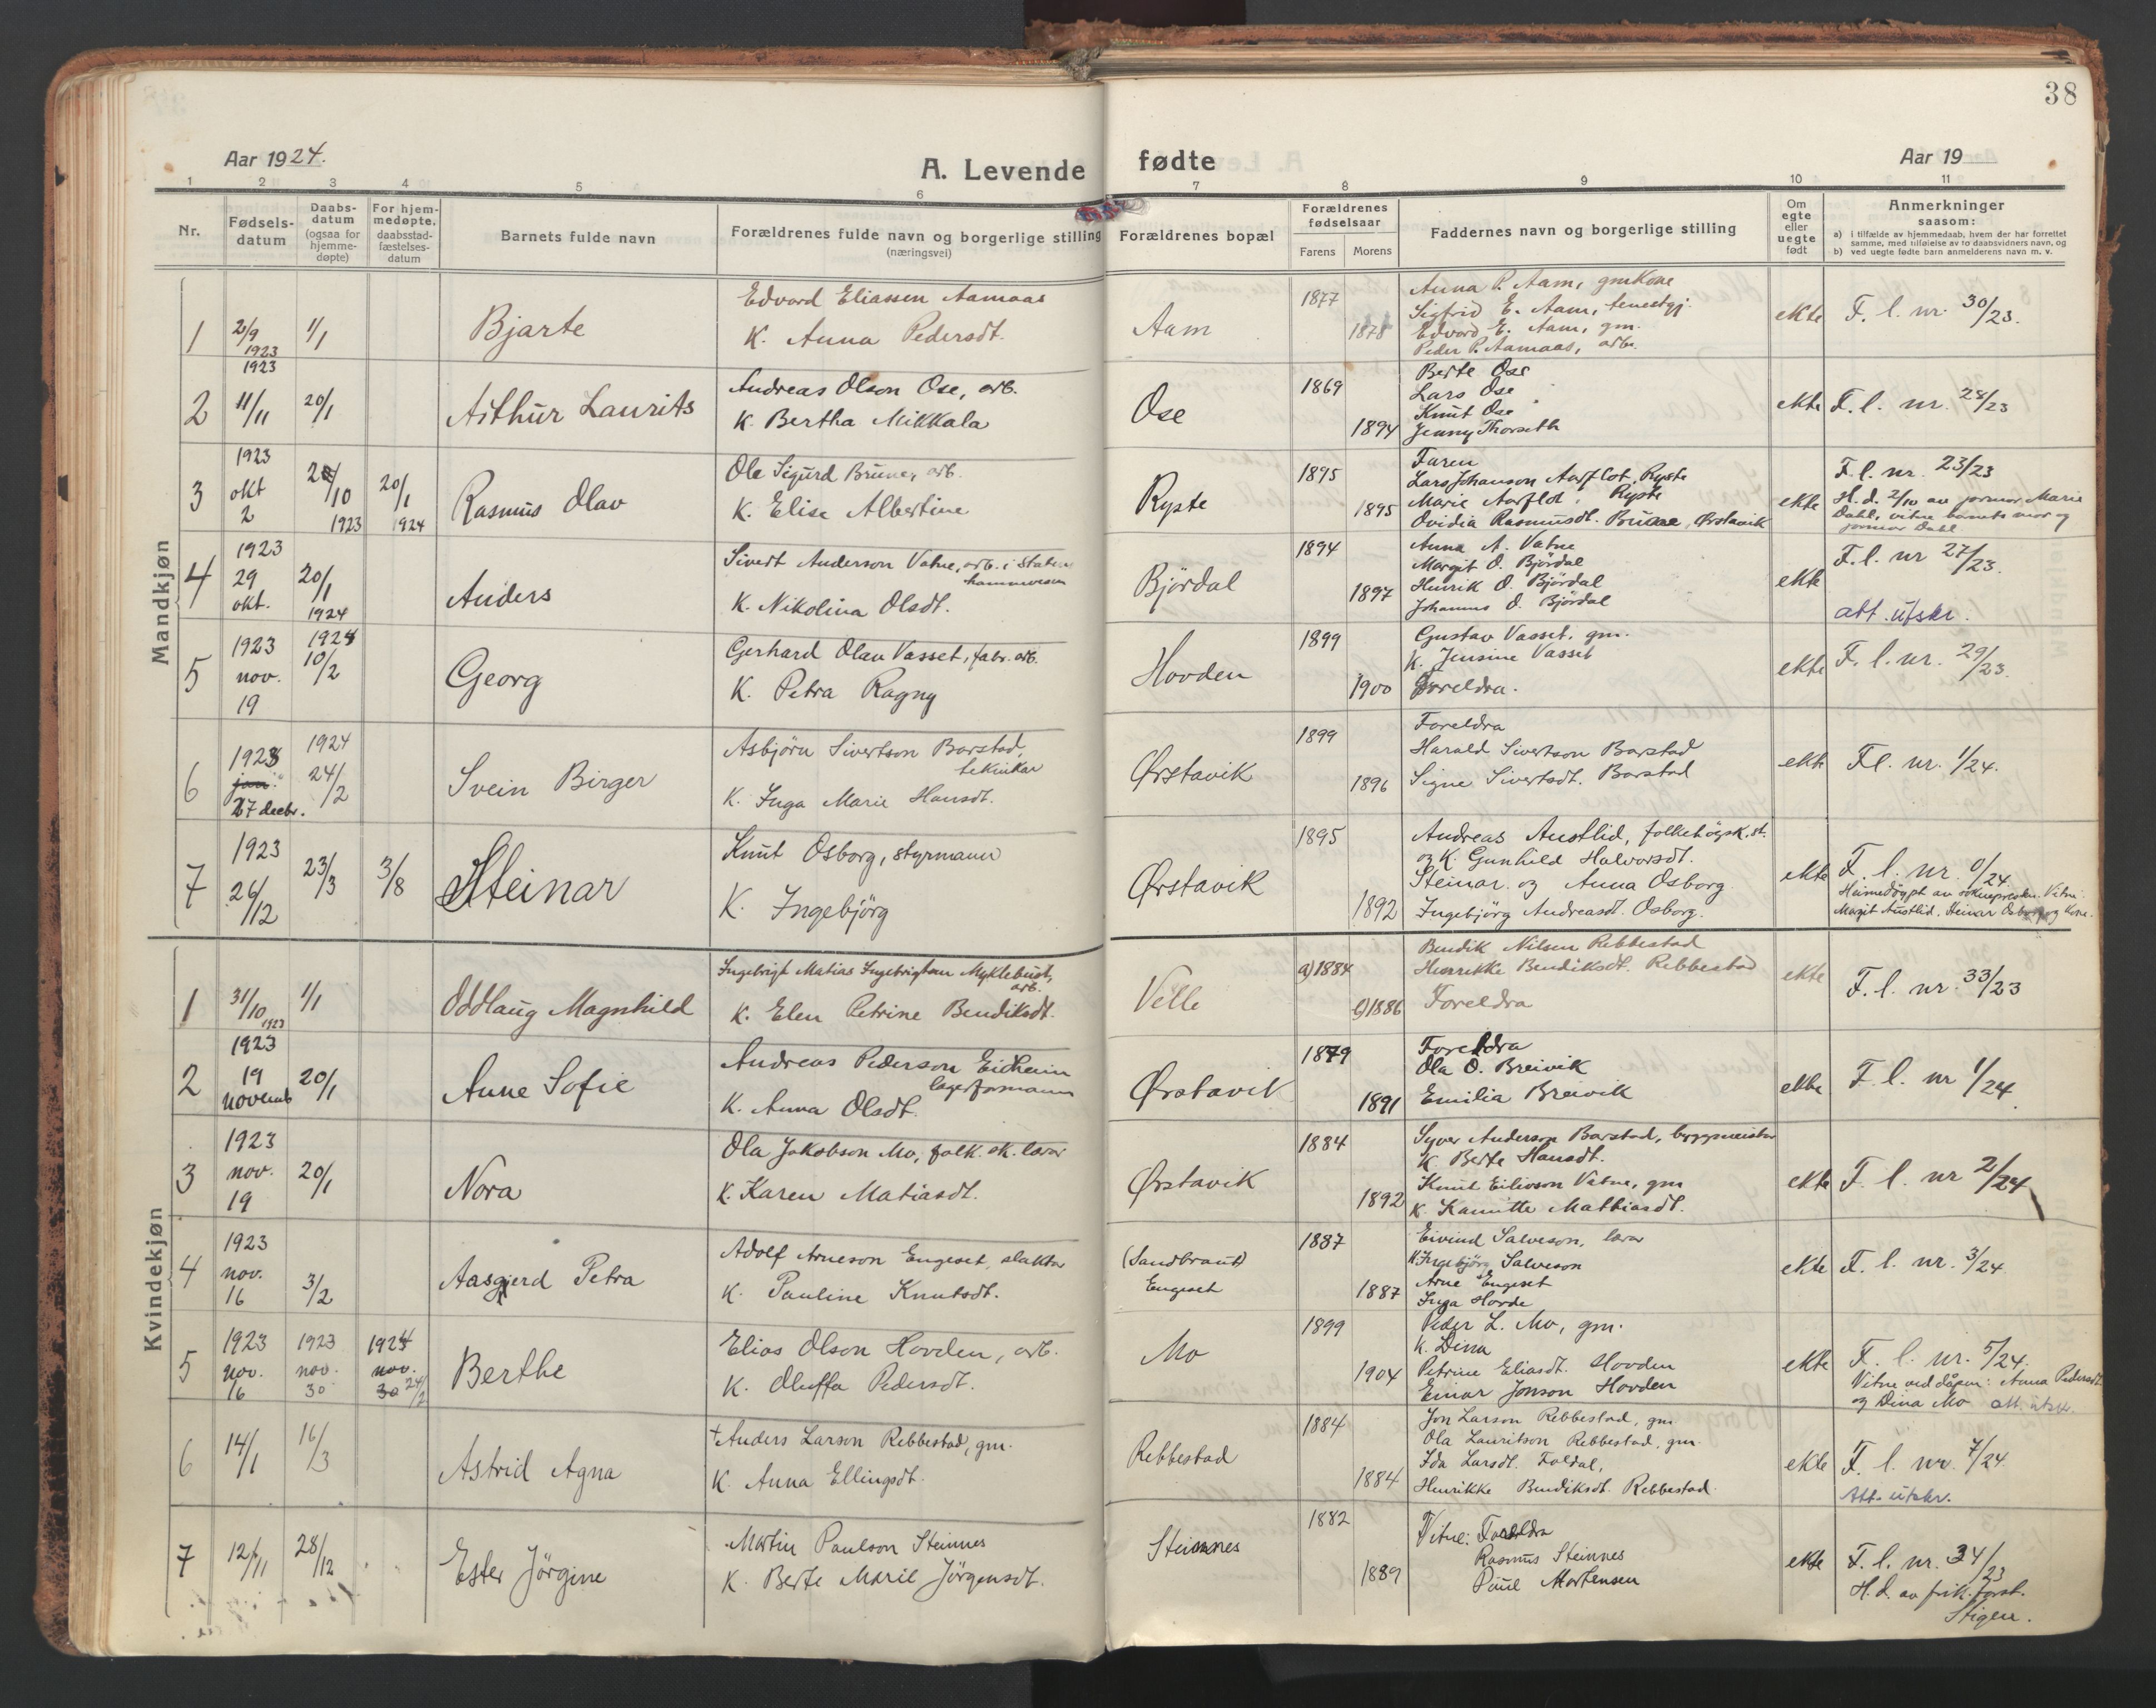 38
Aar 1924.
A. Levende fødte
Aar 19
1 2 3 4 5 6 7 8 9 10 11
Nr.
Fødsels-
datum
Daabs-
datum
(ogsaa for
hjemme-
døpte)
For hjem-
medøpte,
daabsstad-
fæstelses-
datum
Barnets fulde navn
Forældrenes fulde navn og borgerlige stilling
(næringsvei)
Forældrenes bopæl
Forældrenes
fødselsaar
Farens Morens
Faddernes navn og borgerlige stilling
Om
egte
eller
uegte
født
Anmerkninger
saasom:
a) i tilfælde av hjemmedaab, hvem der har forrettet
samme, med tilføielse av to daabsvidners navn, og
b) ved uegte fødte barn anmelderens navn m. v.
Mandkjøn
1
2/9
1923
1/1
Bjarte
Edvard Eliassen Aamaas
K. Anna Pedersdt.
Aam
1877
1878
Anna P. Aam, gmkone
Sigfrid E. Aam, tenestgj.
Edvard E. Aam, gm.
Peder P. Aamaas, arb.
ekte
F. l. nr. 30/23.
2
1923
11/11
20/1
Arthur Laurits
Andreas Olson Ose, arb.
K. Bertha Mikkala
Ose
1869
1894
Berte Ose
Lars Ose
Knut Ose
Jenny Thorseth
ekte
F. l. nr. 28/23
3
1923
okt
2
10
1923
20/1
1924
Rasmus Olav
Ole Sigurd Brune, arb.
K. Elise Albertine
Ryste
1895
1895
Faren
Lars Johanson Aarflot, Ryste
Marie Aarflot, Ryste
Ovidia Rasmusdt. Brune, Ørstavik
ekte
F. l. nr. 23/23
H. d. 2/10 av jormor Marie
Dahl, vitne barnets mor og
jormor Dahl
4
1923
29
okt.
20/1
1924
Anders
Sivert Anderson Vatne, arb. i Statens
havnevesen
K. Nikolina Olsdt.
Bjørdal
1894
1897
Anna A. Vatne
Margit O. Bjørdal
Henrik O. Bjørdal
Johannes O. Bjørdal
ekte
F. l. nr 27/23.
att. utskr.
5
1923
nov.
19
1924
10/2
Georg
Gerhard Olav Vasset, fabr. arb.
K. Petra Ragny
Hovden
1899
1900
Gustav Vasset, gm.
K. Jensine Vasset
Foreldra.
ekte
F. l. nr. 29/23.
6
1923
jan.
27 decbr.
1924
24/2
Svein Birger
Asbjørn Sivertson Barstad,
tekniker
K. Inga Marie Hansdt.
Ørstavik
1899
1896
Foreldra
Harald Sivertson Barstad
Signe Sivertsdt. Barstad
ekte
Fl. nr. 1/24.
7
1923
26/12
23/3
3/8
Steinar
Knut Osborg, styrmann
K. Ingebjörg
Ørstavik
1895
1892
Andreas Austlid, folkehögsk. st.
og K. Gunhild Halvorsdt.
Steinar og Anna Osborg
Ingebjörg Andreasdt. Osborg.
ekte
F. l. nr. 0/24.
Heimedöypt av soknepresten. Vitne:
Margit Austlid. Steinar Osborg og kone.
Kvindekjøn
1
31/10
1923
1/1
Oddlaug Magnhild
Ingebrigt Matias Ingebrigtsen Myklebust,
arb.
K. Elen Petrine Bendiksdt.
Velle
a) 1884
1886
Bendik Nilsen Rebbestad
Henrikke Bendiksdt. Rebbestad
Foreldra
ekte
F. l. nr. 33/23
2
1923
19
novemb
20/1
Anne Sofie
Andreas Pederson Eidheim
lagerformann
K. Anna Olsdt.
Ørstavik
1879
1891
Foreldra
Ola O. Breivik
Emilia Breivik
ekte
F. l. nr 1/24.
3
1923
nov.
19
20/1
Nora
Ola Jakobson Mo, folk. sk. lærar
K. Karen Matiasdt.
Ørstavik
1884
1892
Syver Anderson Barstad, byggmeister
K. Berte Hansdt.
Knut Eilivson Vatne, gm
K. Kamitte Mathiasdt.
ekte
F. l. nr 2/24
4
1923
nov.
16
3/2
Aasgjerd Petra
Adolf Arneson Engeset, slaktar
K. Pauline Knutsdt.
(Sandbraut)
Engeset
1887
1887
Eivind Salveson, lærar
K. Ingebjörg Salveson
Arne Engeset
Inga Hovde
ekte
F. l. nr. 3/24
5
1923
nov.
16
1923
nov.
30
1924
nov.
30 24/2
Berthe
Elias Olson Hovden, arb.
K. Oluffa Pedersdt.
Mo
1899
1904
Peder L. Mo, gm.
K. Dina
Petrine Eliasdt. Hovden
Einar Jonson Hovden
ekte
F. l. nr. 5/24.
Vitne ved dåpen: Anna Pedersdt
og Dina Mo att. utskr.
6
14/1
16/3
Astrid Agna
+Anders Larson Rebbestad, gm.
K. Anna Ellingsdt.
Rebbestad
1884
1884
Jon Larson Rebbestad, gm
Ola Lauritson Rebbestad, gm.
Ida Larsdt. Foldal,
Henrikke Bendiksdt. Rebbestad
ekte
F. l. nr. 7/24.
Att. utskr.
7
12/11
28/12
Ester Jörgine
Martin Paulson Steinnes
K. Berte Marie Jörgensdt.
Steinnes
1882
1889
Vitne: Foreldra
Rasmus Steinnes
Paul Mortensen
ekte
F. l. nr. 34/23
H. d. av frik. forst.
Stigen.